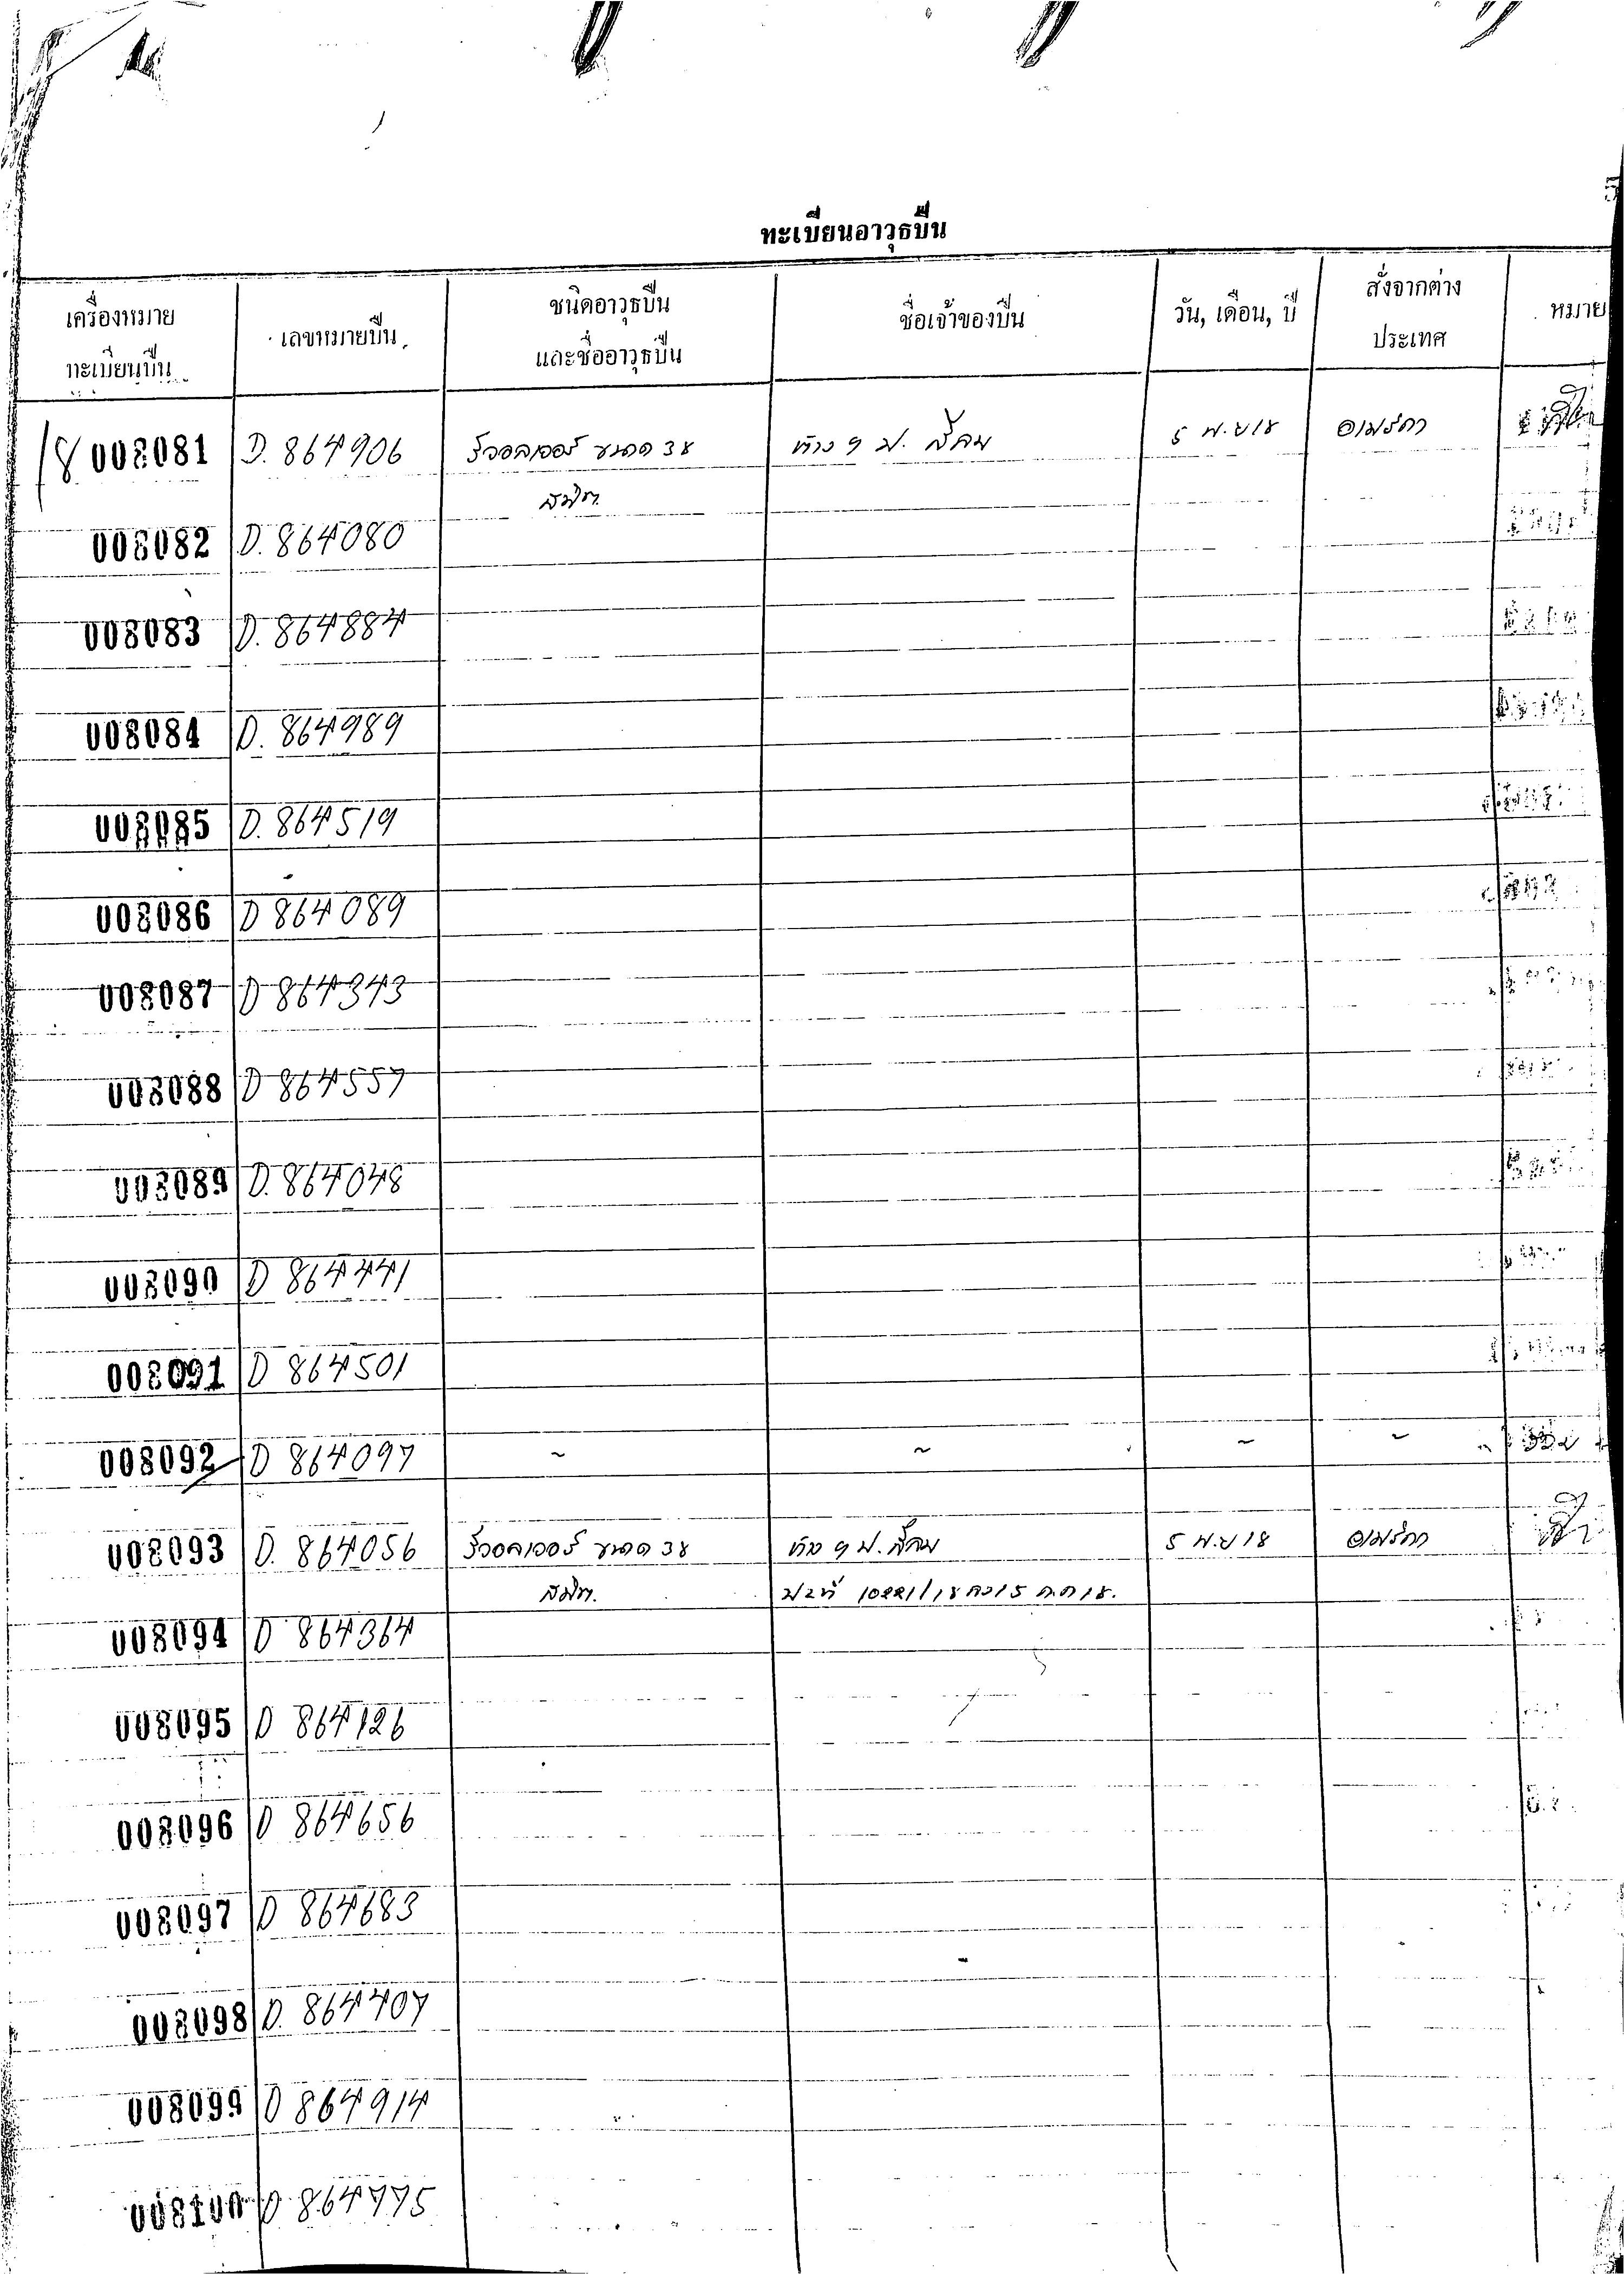 ทะเบียนอาวุธปืน
เครื่องหมาย
ทะเบียนปืน
เลขหมายปืน
ชนิดอาวุธปืน
และชื่ออาวุธปืน
ชื่อเจ้าของปืน
วัน, เดือน, ปี
สั่งจากต่าง
ประเทศ
หมาย
008081 D. 864906 รีวอลเวอร์ ขนาด 38 ห้าง ป. สี่ลม 5 พ.ย 18 อเมริกา
สมิท
008082 D. 864080
008083 D. 864884
008084 D. 864989
008085 D. 864519
008086 D 864089
008087 D 864343
008088 D 864557
008089 D. 864048
008090 D 864441
008091 D 864501
008092 D 864097 ~ ~ ~ ~
008093 D. 864056 รีวอลเวอร์ ขนาด 38 5 พ.ย 18 อเมริกา
สมิท
008094 D 864364
008095 D 864126
008096 D 864656
008097 D 864683
008098 D. 864407
008099 D 864914
008100 D. 864775